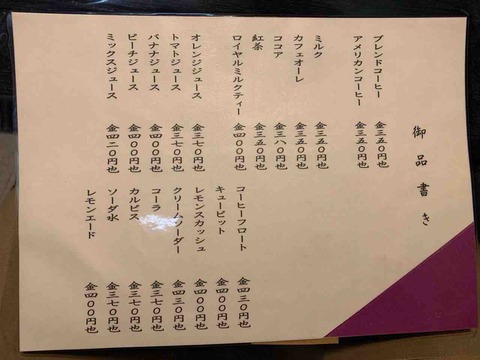 御品書き
ブレンドコーヒー 金三五〇円也
アメリカンコーヒー 金三五〇円也
ミルク 金三五〇円也
カフェオーレ 金三五〇円也
ココア 金三八〇円也
紅茶 金三五〇円也
ロイヤルミルクティー 金四〇〇円也
オレンジジュース 金三七〇円也
トマトジュース 金三七〇円也
バナナジュース 金四〇〇円也
ピーチジュース 金四〇〇円也
ミックスジュース 金四二〇円也
コーヒーフロート 金四三〇円也
キューピット 金四〇〇円也
レモンスカッシュ 金四〇〇円也
クリームソーダー 金四三〇円也
コーラ 金三七〇円也
カルピス 金三七〇円也
ソーダ水 金三七〇円也
レモンエード 金四〇〇円也